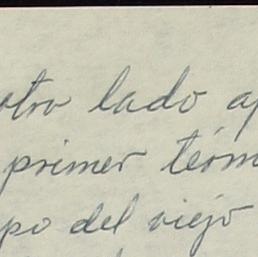 otro lado ap
primer térm
po del viejo